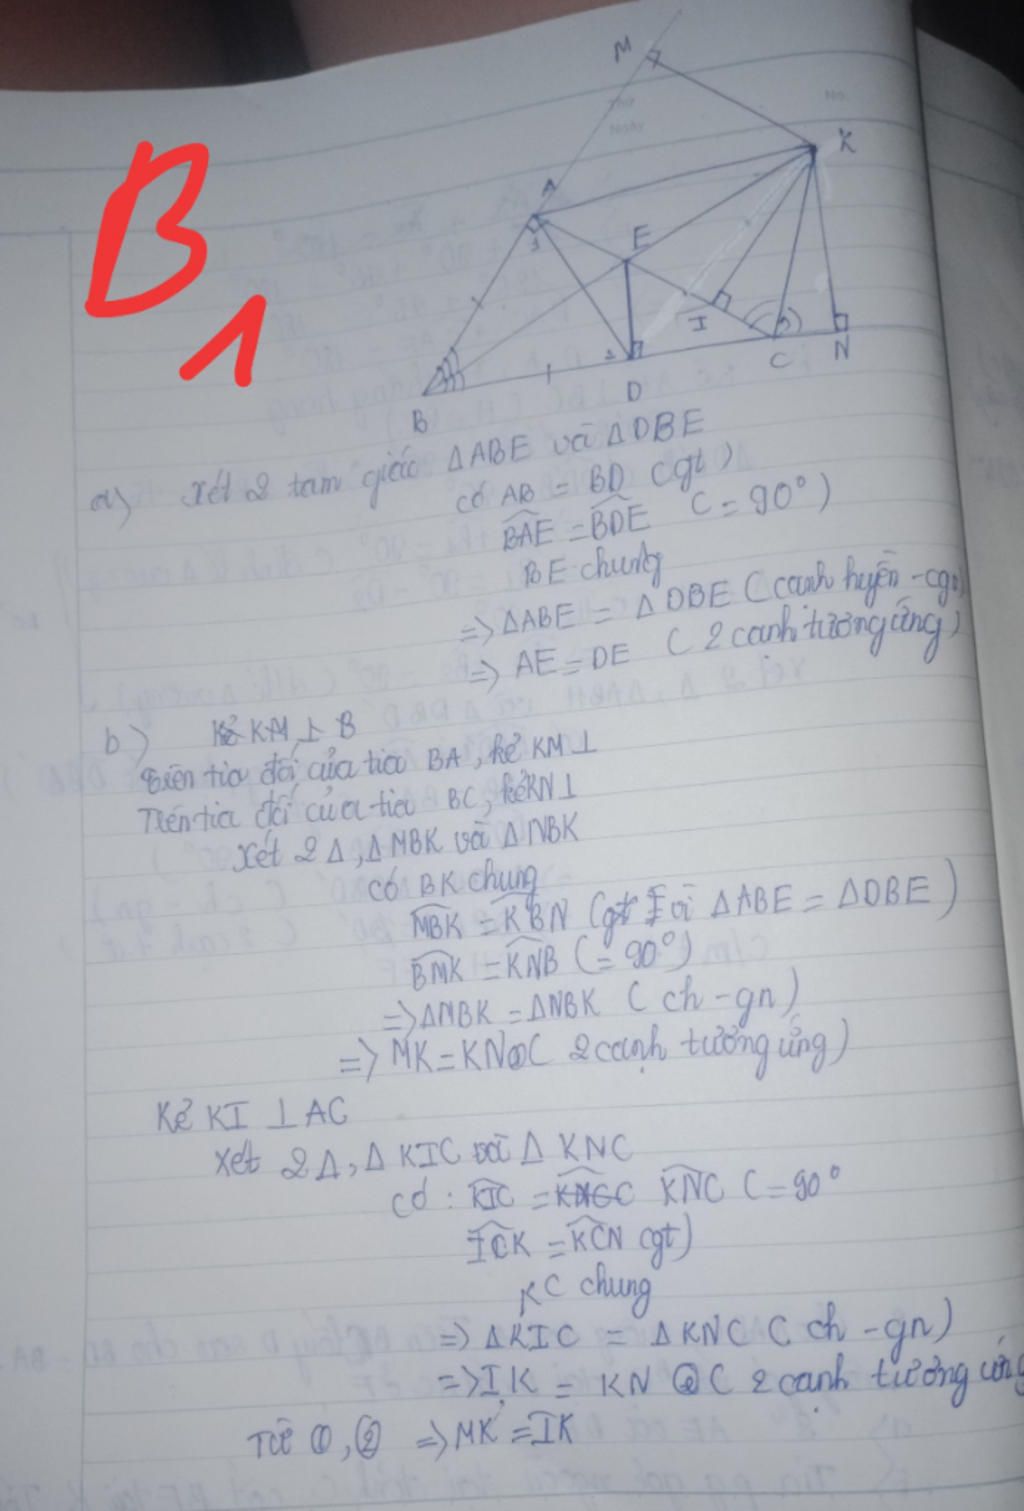 B1
Thứ
Ngày
No.
M
K
A
1
E
I
2
B
D
C
N
a) Xét 2 tam giác ΔABE và ΔDBE
có AB = BD (gt)
BAE = BDE (= 90°)
BE chung
=> ΔABE = ΔDBE (cạnh huyền - cgv)
=> AE = DE (2 cạnh tương ứng)
b) Kẻ KM ⊥ B
Trên tia đối của tia BA, kẻ KM ⊥
Trên tia đối của tia BC, kẻ KN ⊥
Xét 2 Δ, ΔMBK và ΔNBK
có BK chung
MBK = KBN (gt vì ΔABE = ΔDBE)
BMK = KNB (= 90°)
=> ΔMBK = ΔNBK (ch - gn)
=> MK = KN ① ( 2 cạnh tương ứng)
Kẻ KI ⊥ AC
Xét 2 Δ, Δ KIC và Δ KNC
có : KIC = KNC (= 90°
ICK = KCN (gt)
KC chung
=> ΔKIC = ΔKNC ( ch - gn)
=> IK = KN ② ( 2 cạnh tương ứng
Từ ①, ② => MK = IK